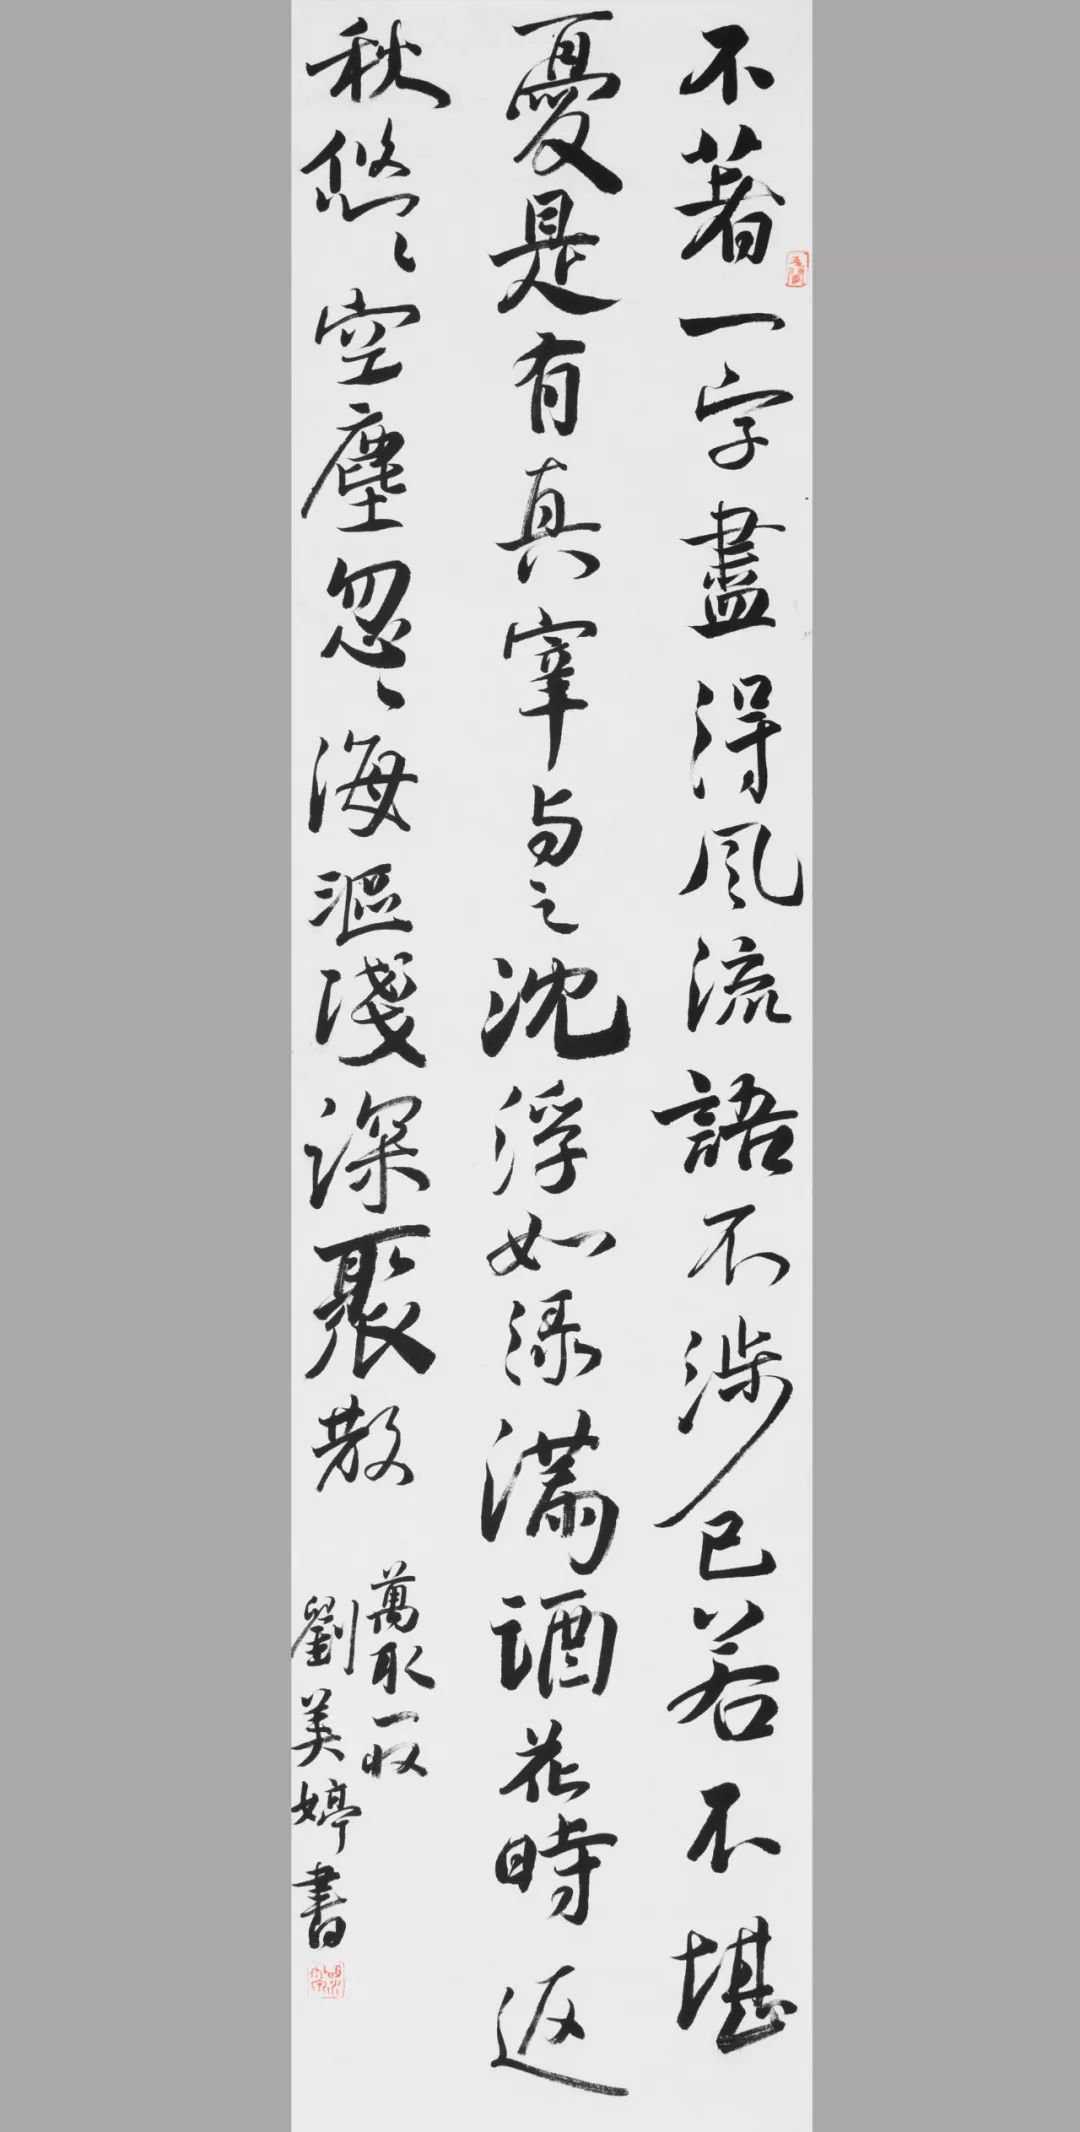 不著一字盡得風流語不涉已若不堪
憂是有真宰与之沈浮如渌滿酒花時返
秋悠々空塵忽々海漚淺深聚散
萬取一收
劉美婷書